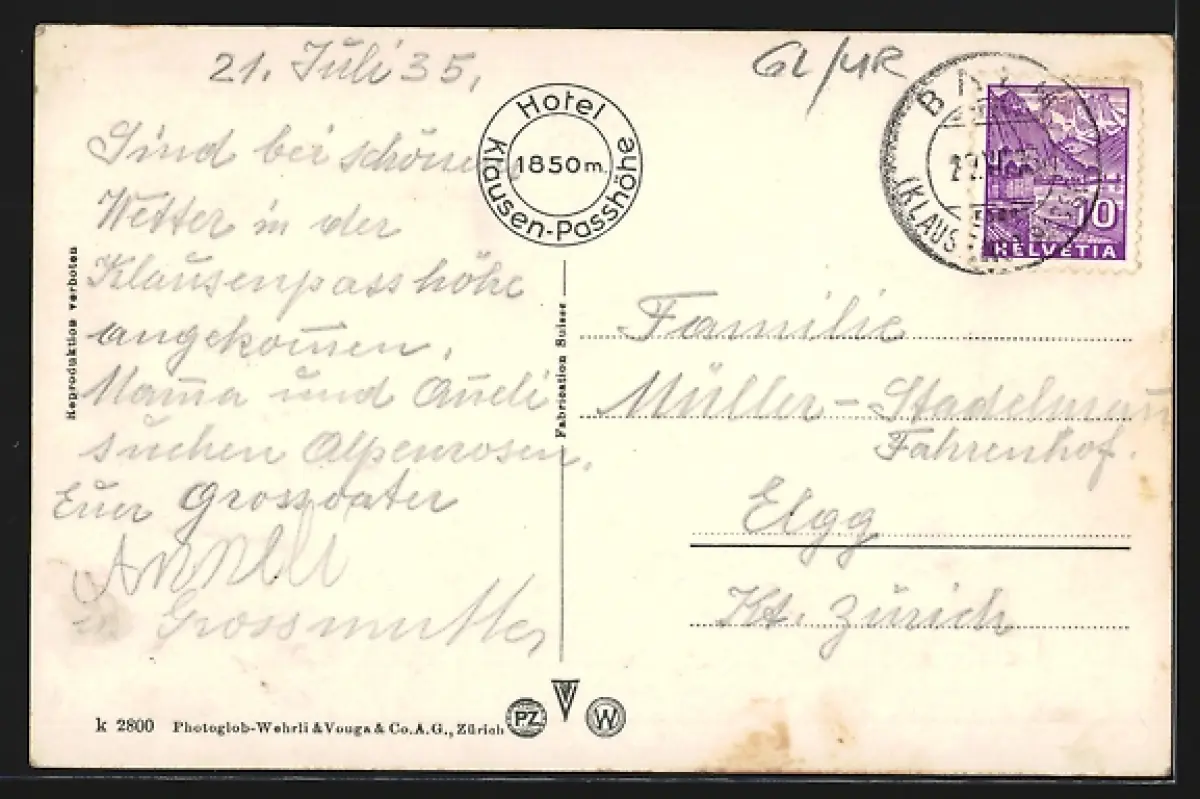 21. Juli 35,
GL/UR
Sind bei schönem
Wetter in der
Klausenpasshöhe
angekom̄en.
Mam̄a und
suchen Alpenrosen.
Euer Grossvater
Anneli
Grossmutter
Hotel
Klausen-Passhöhe
1850 m.
Reproduktion verboten
Fabrication Suisse
(KLAUS
10
HELVETIA
Familie
Müller-Stadelmann
Fahrenhof.
Elgg
Kt. Zürich
k 2800 Photoglob-Wehrli & Vouga & Co. A.G., Zürich
PZ
W